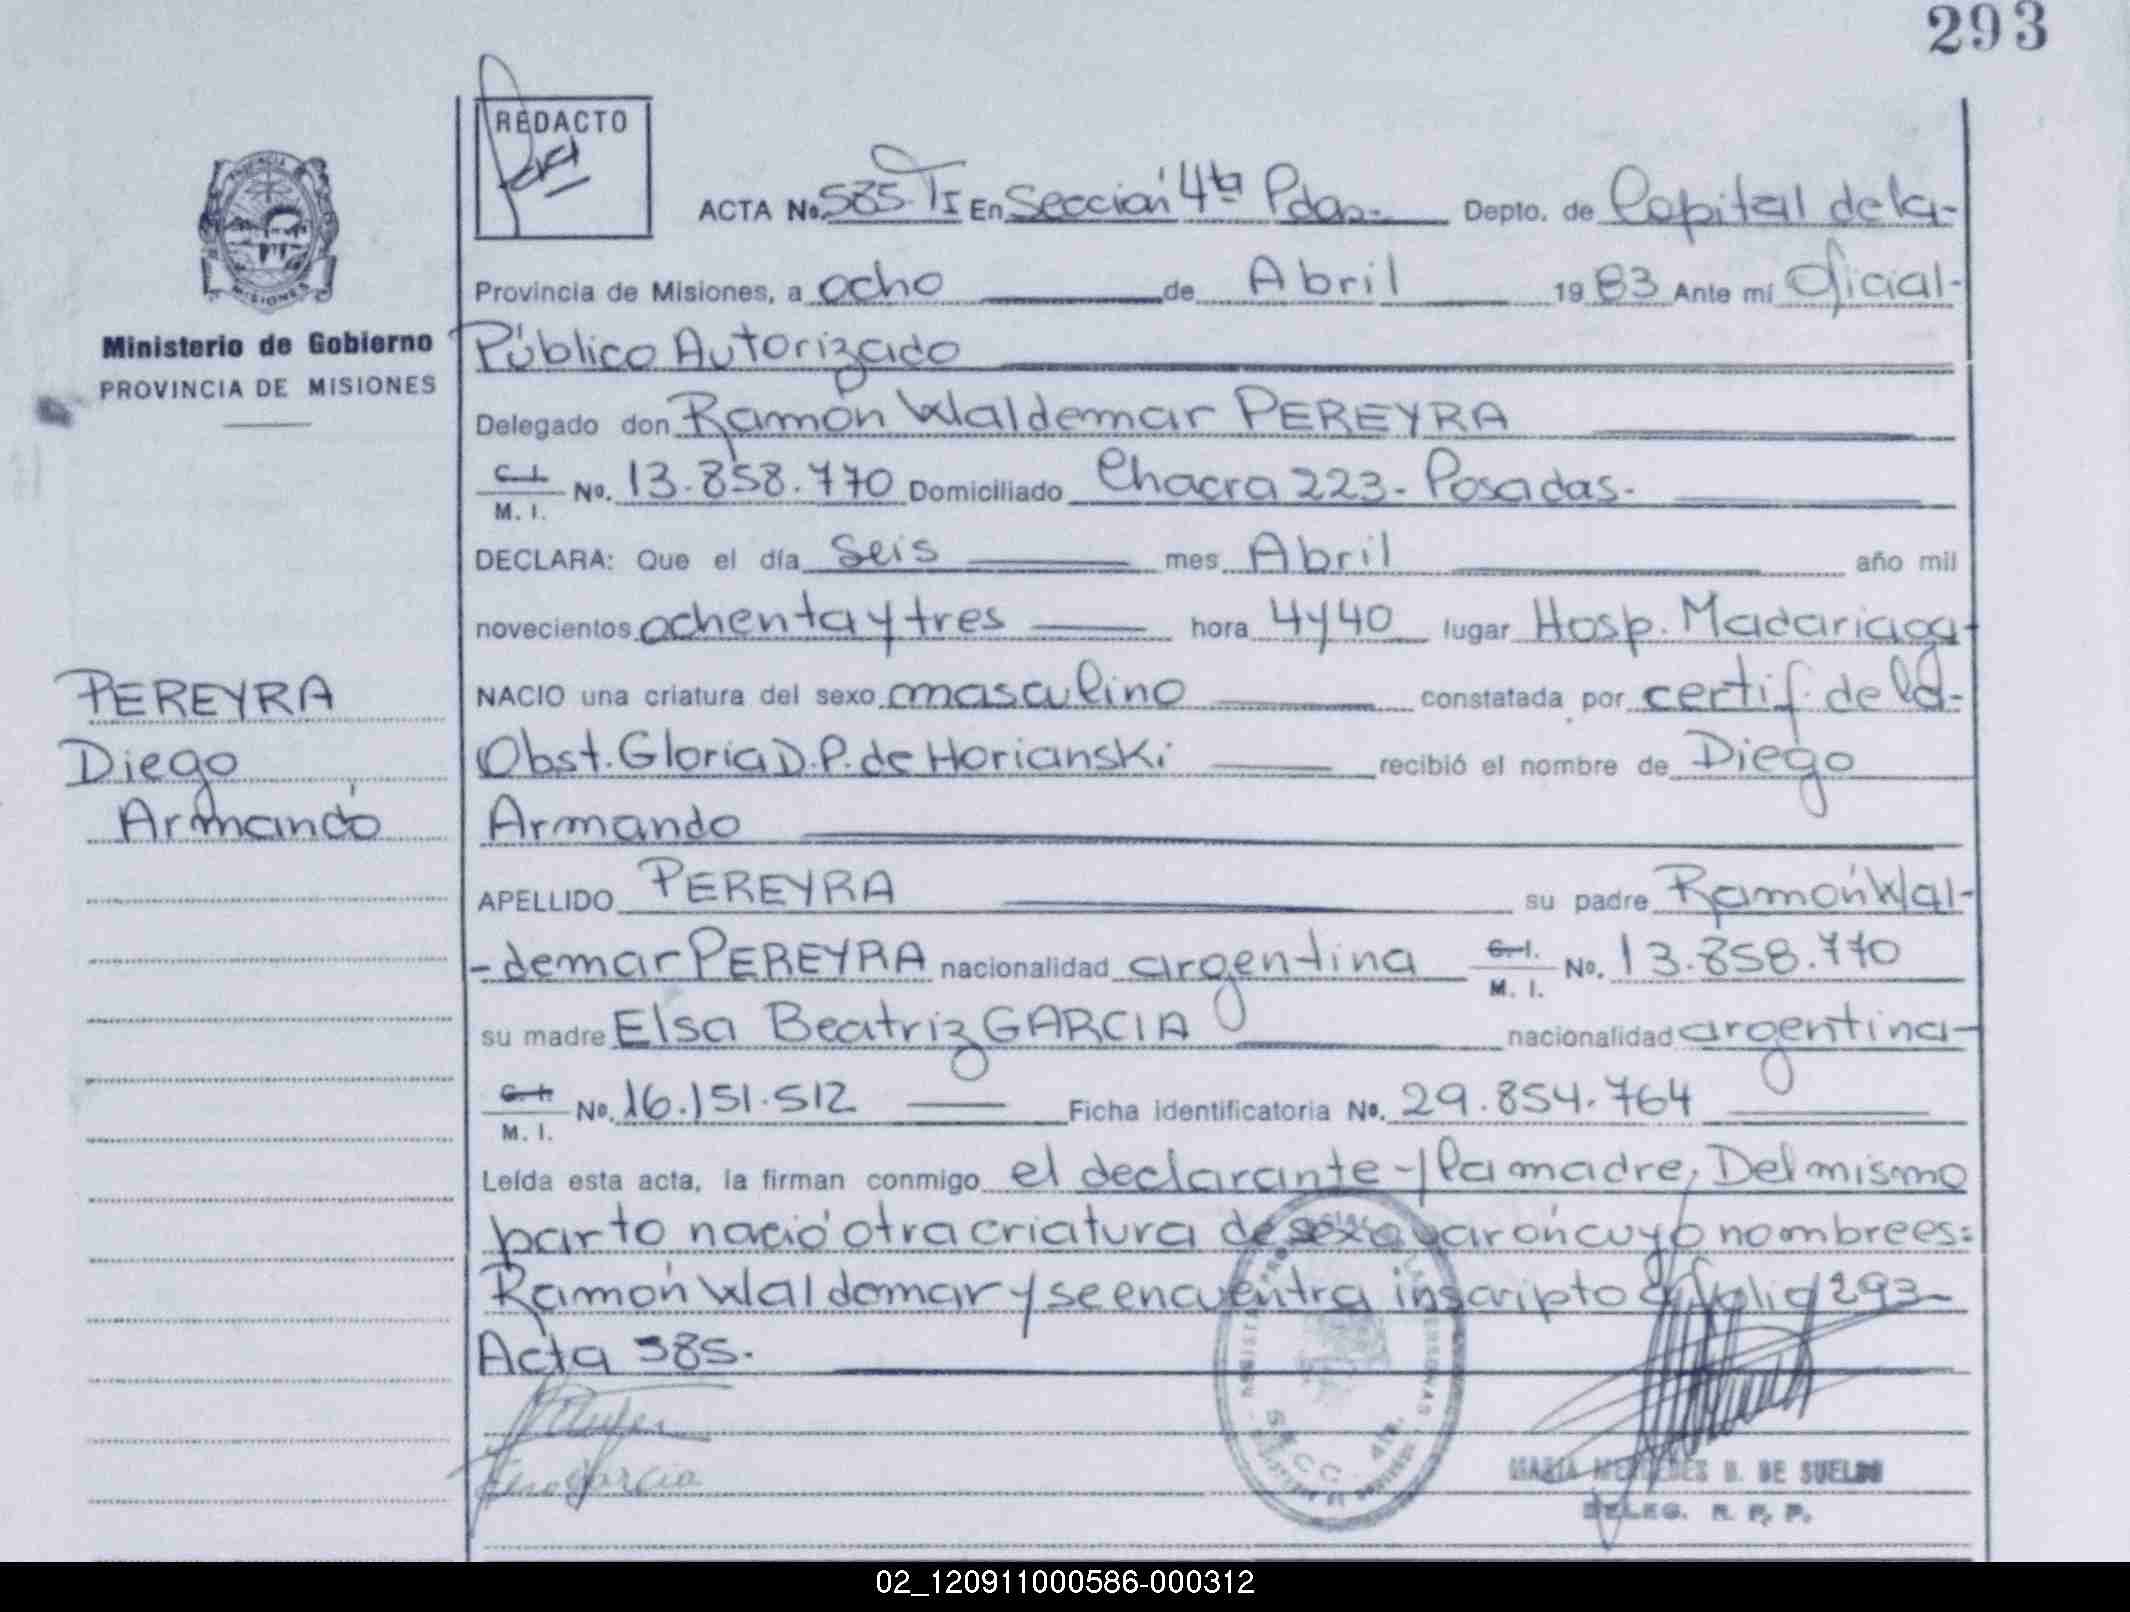 293
REDACTO
ACTA No. 585 TI En Sección 4ta Pdas.- Depto. de Capital de la-
Provincia de Misiones, a ocho de Abril 1983 Ante mí Oficial-
Ministerio de Gobierno
PROVINCIA DE MISIONES
Público Autorizado
Delegado don Ramón Waldemar PEREYRA
C. I.
M. I. No. 13.858.770 Domiciliado Chacra 223- Posadas.-
DECLARA: Que el día Seis mes Abril año mil
novecientos ochenta y tres hora 4y40 lugar Hosp. Madariaga-
PEREYRA
Diego
Armando
NACIO una criatura del sexo masculino constatada por certif. de la-
Obst. Gloria D. P. de Horianski recibió el nombre de Diego
Armando
APELLIDO PEREYRA su padre Ramón Wal-
-demar PEREYRA nacionalidad argentina C. I.
M. I. No. 13.858.770
su madre Elsa Beatriz GARCIA nacionalidad argentina-
C. I.
M. I. No. 16.151.512 Ficha identificatoria No. 29.854.764
Leída esta acta, la firman conmigo el declarante y la madre, Del mismo
parto nació otra criatura de sexo varón cuyo nombre es:
Ramón Waldemar y se encuentra inscripto folio 293-
Acta 585.
Garcia
S. R. C. C. 4ta.
MARIA MERCEDES B. DE SUELDO
DELEG. R. P. P.
02_120911000586-000312